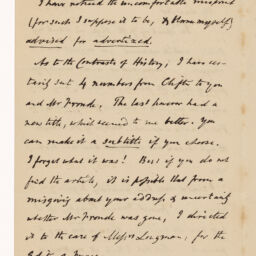 I have noticed the uncomfortable misprint
(for such I suppose it to be, & blame myself)
advised for advertized.
As to the Contrasts of History, I have cer-
tainly sent 4 numbers from Clifton to you
and Mr Froude. The last however had a
new title, which seemed to me better. You
can make it a subtitle if you choose.
I forget what it was! But if you do not
find the article, it is possible that from a
misgiving about your address, & uncertainty
whether Mr Froude was gone, I directed
it to the care of Messrs Longman, for the